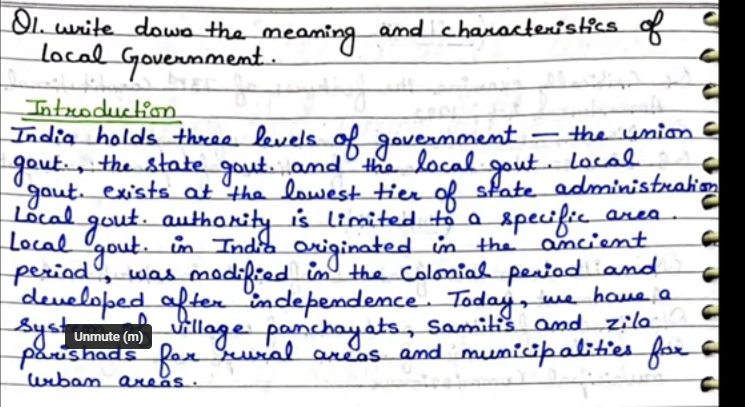 Q1. write down the meaning and characteristics of
Local Government.
Introduction
India holds three levels of government — the union
gout., the state gout. and the local gout. Local
gout. exists at the lowest tier of state administration
Local gout. authority is limited to a specific area.
Local gout. in India originated in the ancient
period, was modified in the Colonial period and
developed after independence. Today, we have a
village panchayats, Samitis and zila
Unmute (m)
parishads for rural areas and municipalities for
urban areas.